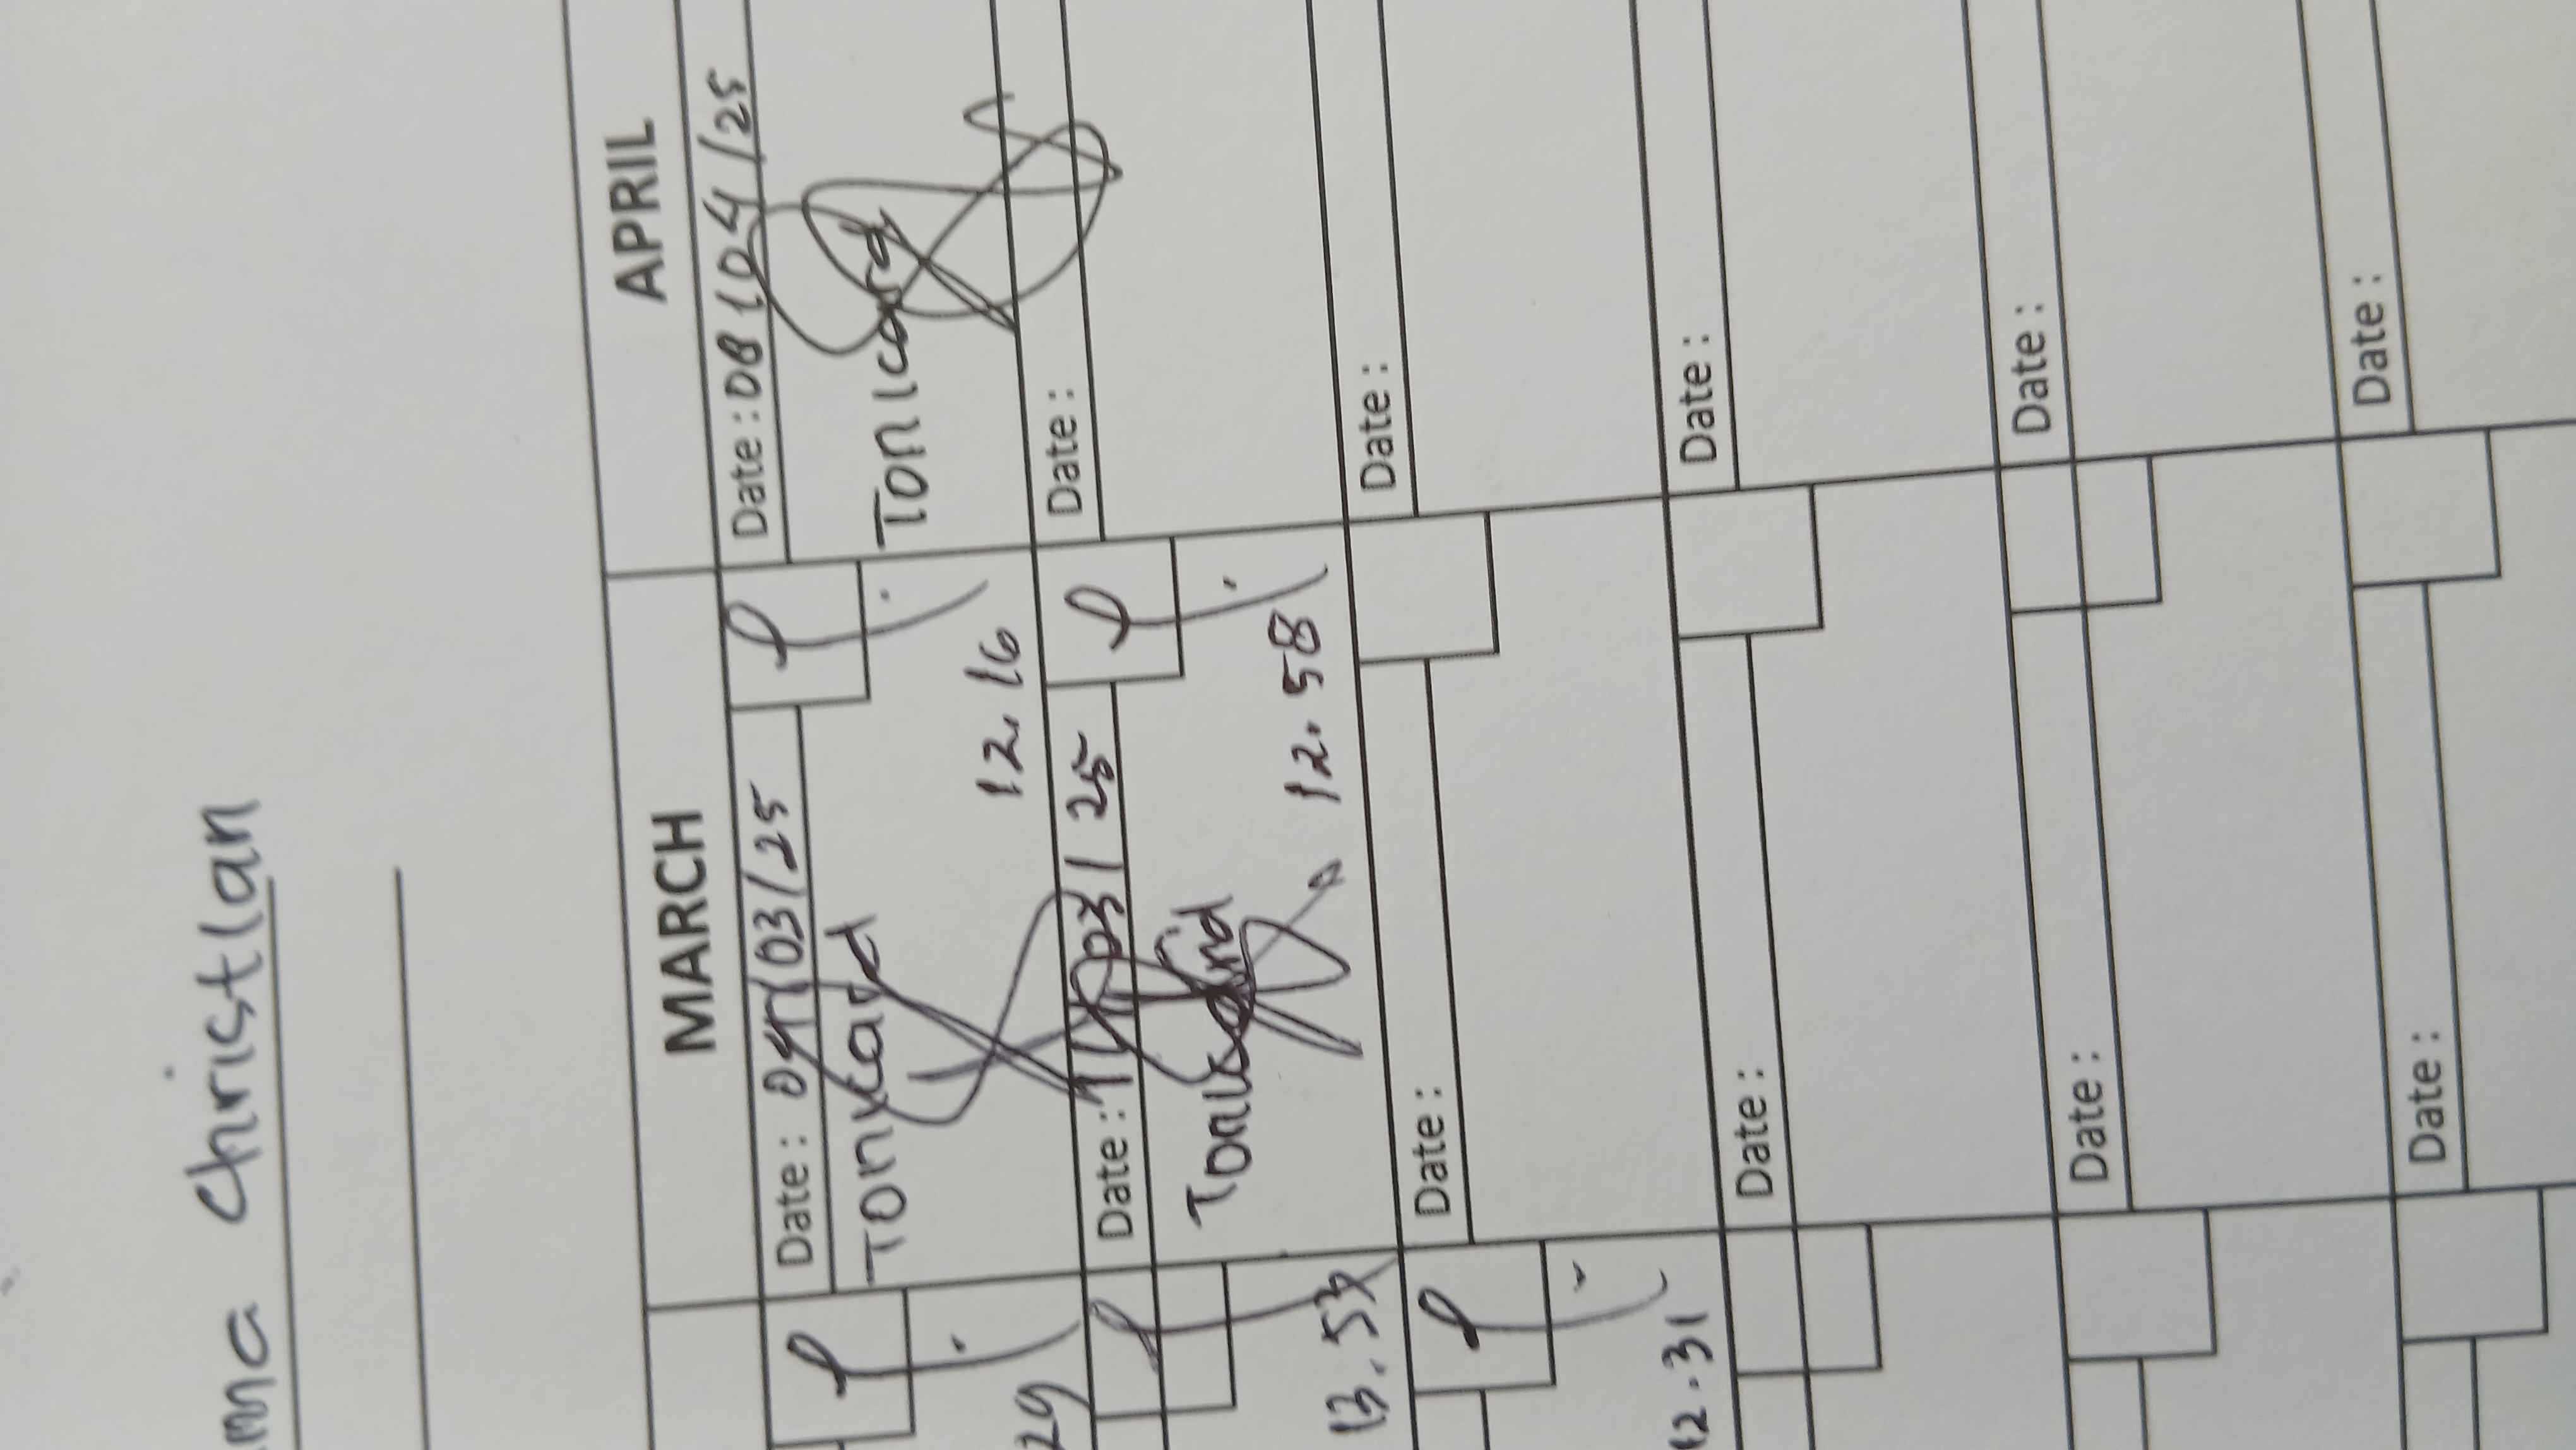 ma Christian
MARCH
APRIL
Date : 04/03/25
Date : 08/04/25
Tonycard
Tonicard
29
12.16
Date : 11/03/25
Date :
Tonicard
13.53
12.58
Date :
Date :
12.31
Date :
Date :
Date :
Date :
Date :
Date :